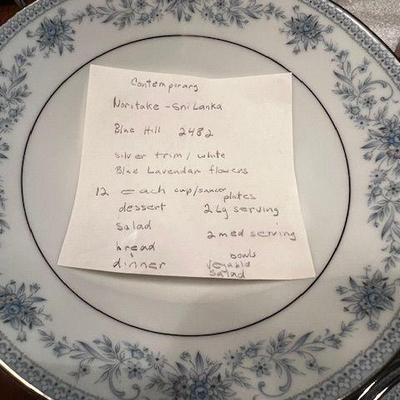 Contemporary
Noritake - Sri Lanka
Blue Hill 2482
silver trim / white
Blue Lavendar flowers
12 each cup/saucer plates
dessert 2 Lg serving
salad 2 med serving
bread bowls
dinner vegable
salad